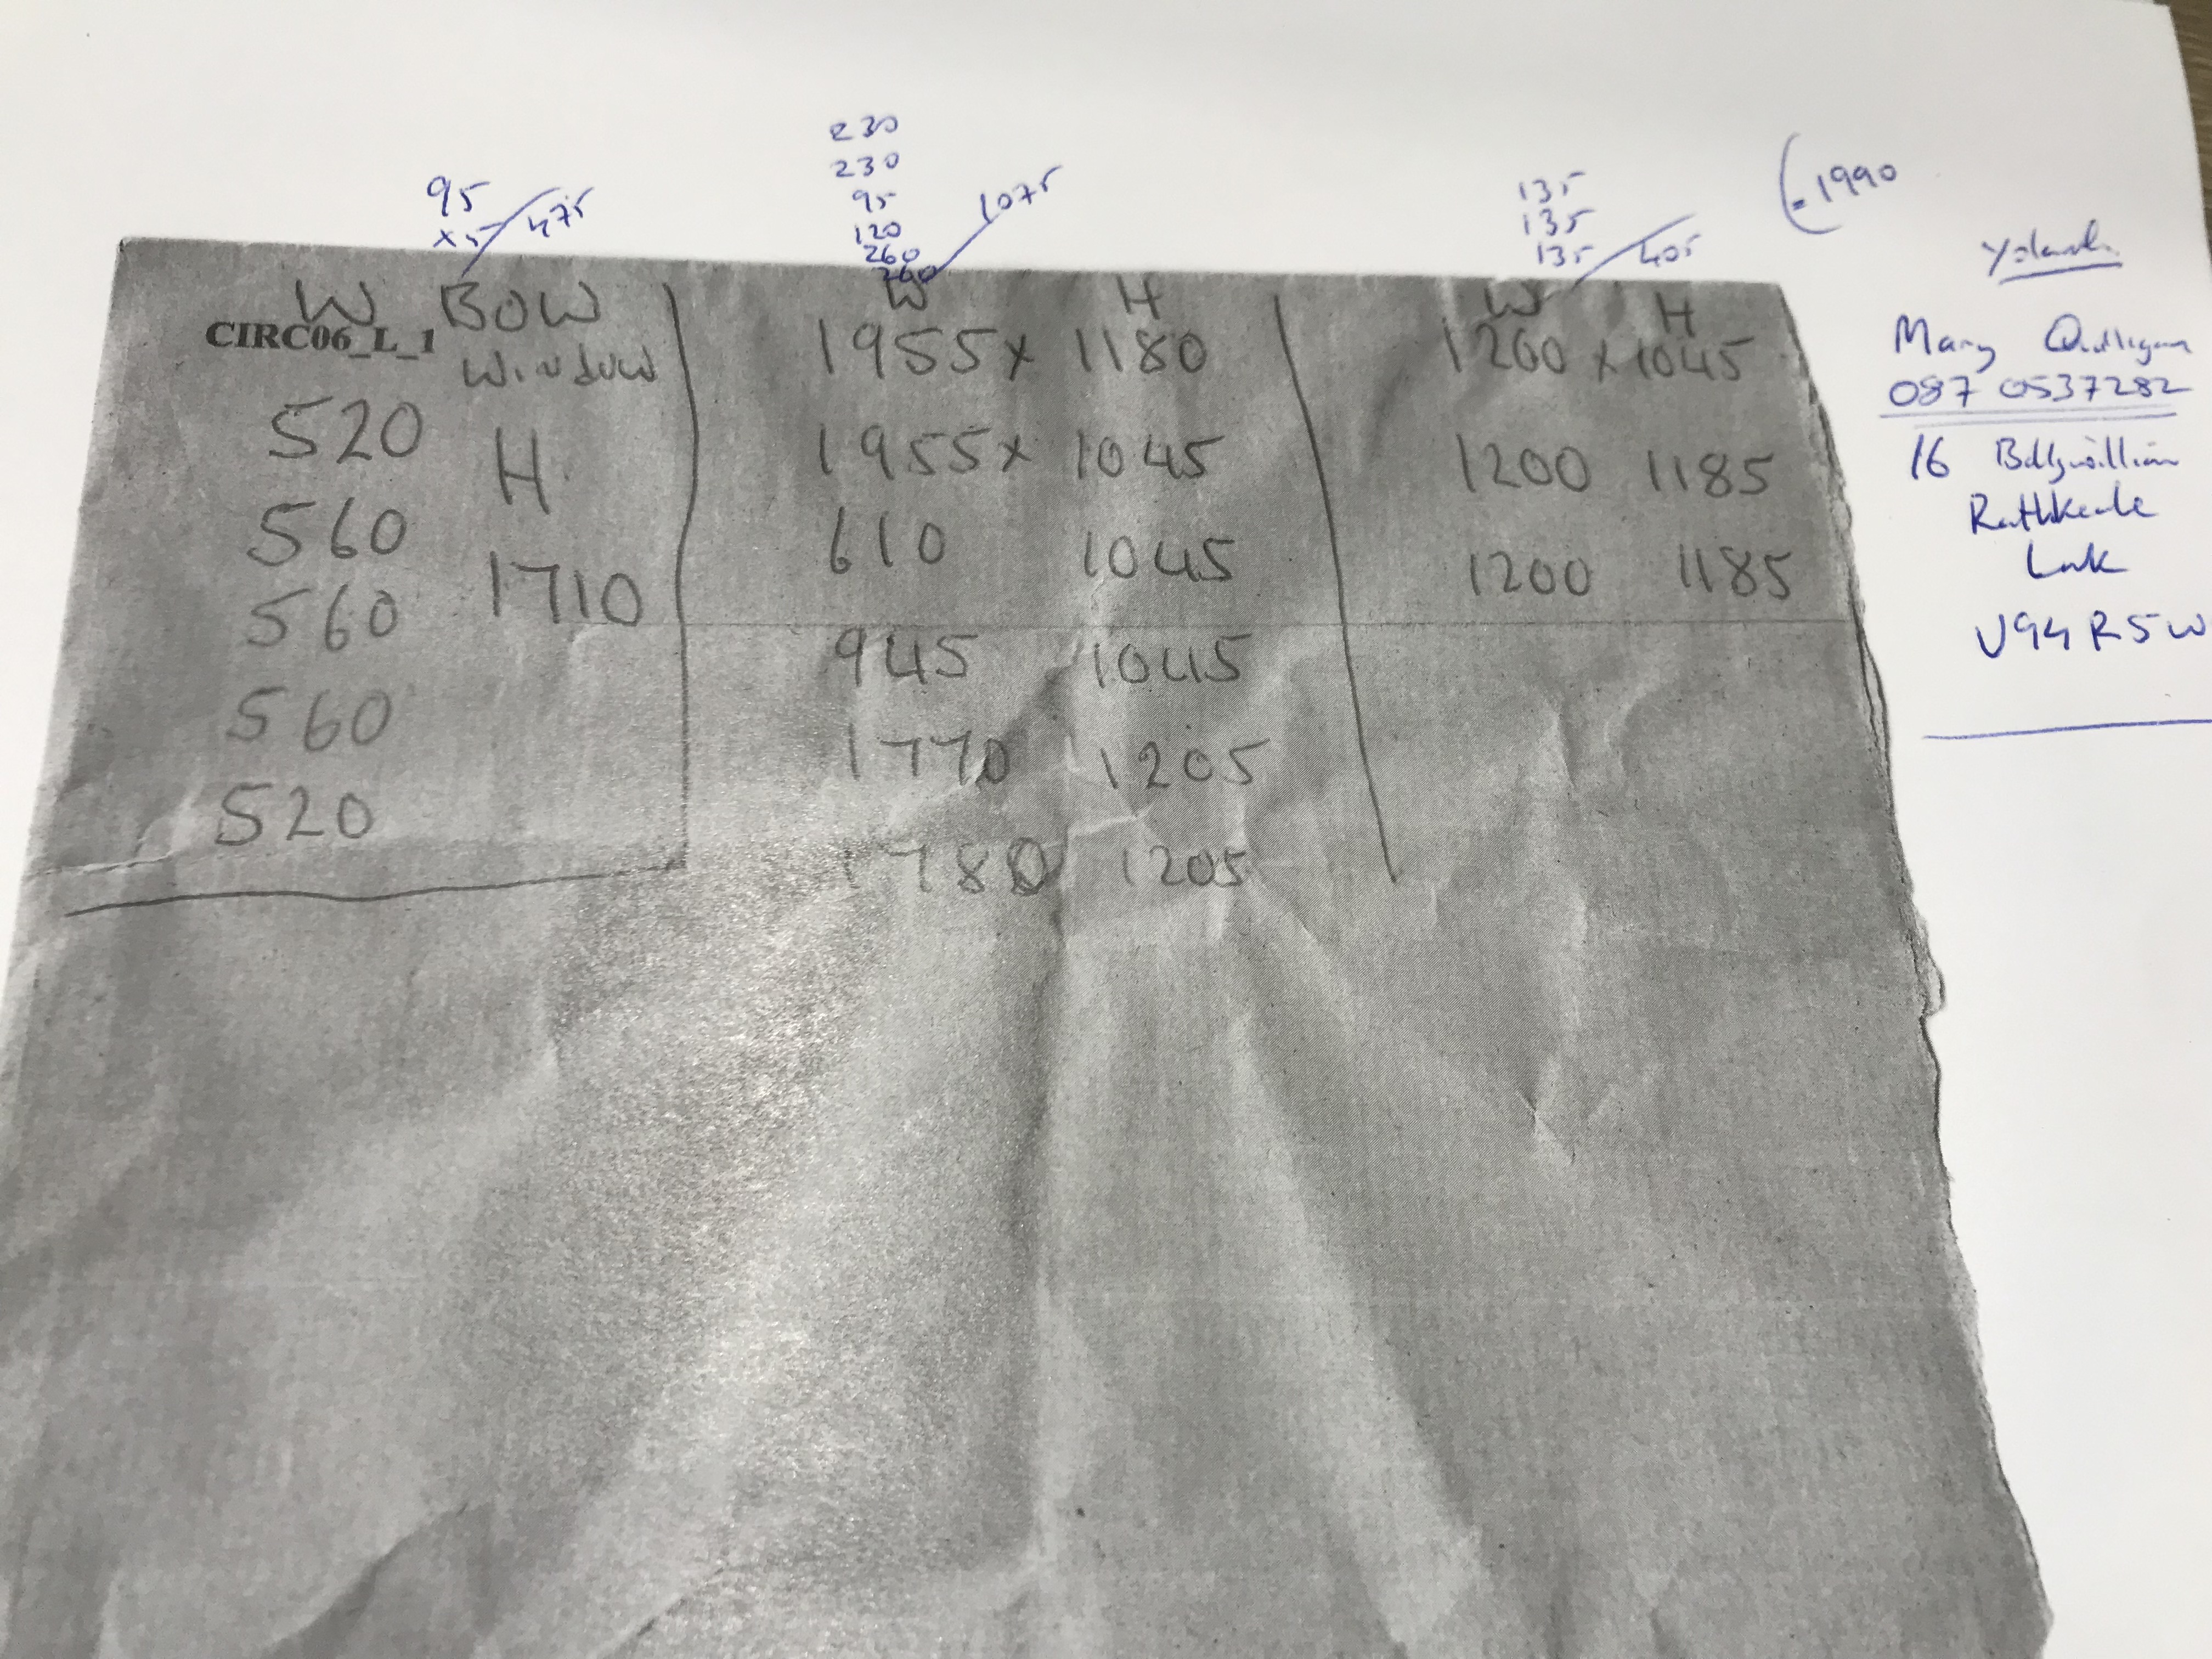 95
x5 475
230
230
95
120
260
260
1075
135
135
135 405
1990
W BOW
CIRC06_L_1
WINDOW
520 H
560 1710
560
560
520
W H
1955 x 1180
1955 x 1045
610 1045
945 1045
1770 1205
1780 1205
W H
1200 x 1045
1200 1185
1200 1185
Mary
087 0537282
16
Rathkeale
V94 R5W